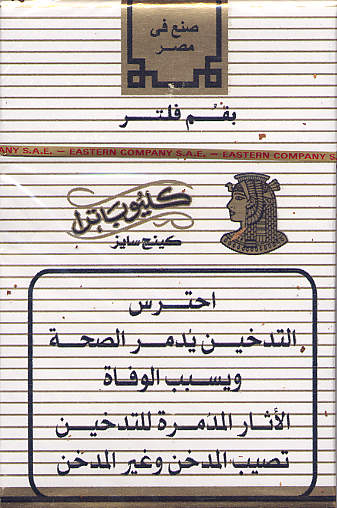 صنع فى
مصر
بفم فلتر
ANY S.A.E. — EASTERN COMPANY S.A.E. — EASTERN COMPANY S.A.E. — EASTERN
كليوباترا
كينج سايز
احترس
التدخين يُدمر الصحة
ويسبب الوفاة
الأثار المدُمرة للتدخين
تصيب المدخن وغير المدخن